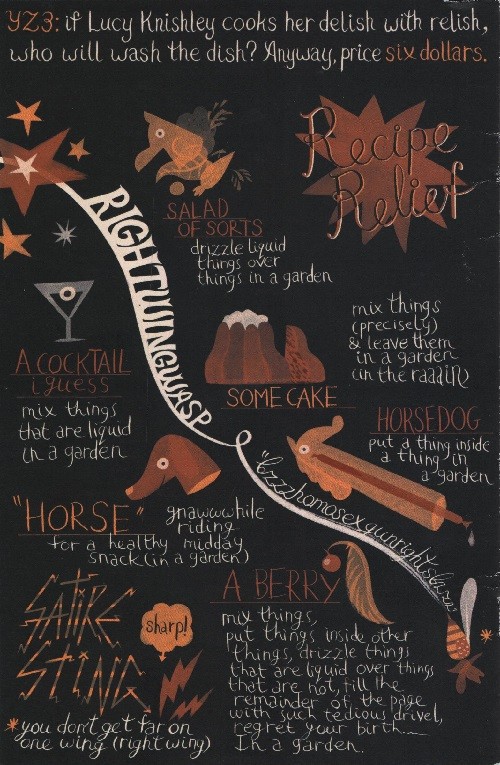 YZ3: if Lucy Knishley cooks her delish with relish,
who will wash the dish? Anyway, price six dollars.
Recipe
Relief
SALAD
OF SORTS
drizzle liquid
things over
things in a garden
RIGHTWINGWASP
mix things
(precisely)
& leave them
in a garden
(in the raddin)
SOME CAKE
A COCKTAIL
i guess
mix things
that are liquid
in a garden
HORSEDOG
put a thing inside
a thing in
a garden
"HORSE"
gnawwwhile
riding
for a healthy midday
snack (in a garden)
"bzzzhomosexgunrightsbzzz
A BERRY
mix things,
put things inside other
things, drizzle things
that are liquid over things
that are not, fill the
remainder of the page
with such tedious drivel,
regret your birth
In a garden.
SATIRE
STING
sharp!
*
*you don't get far on
one wing (right wing)